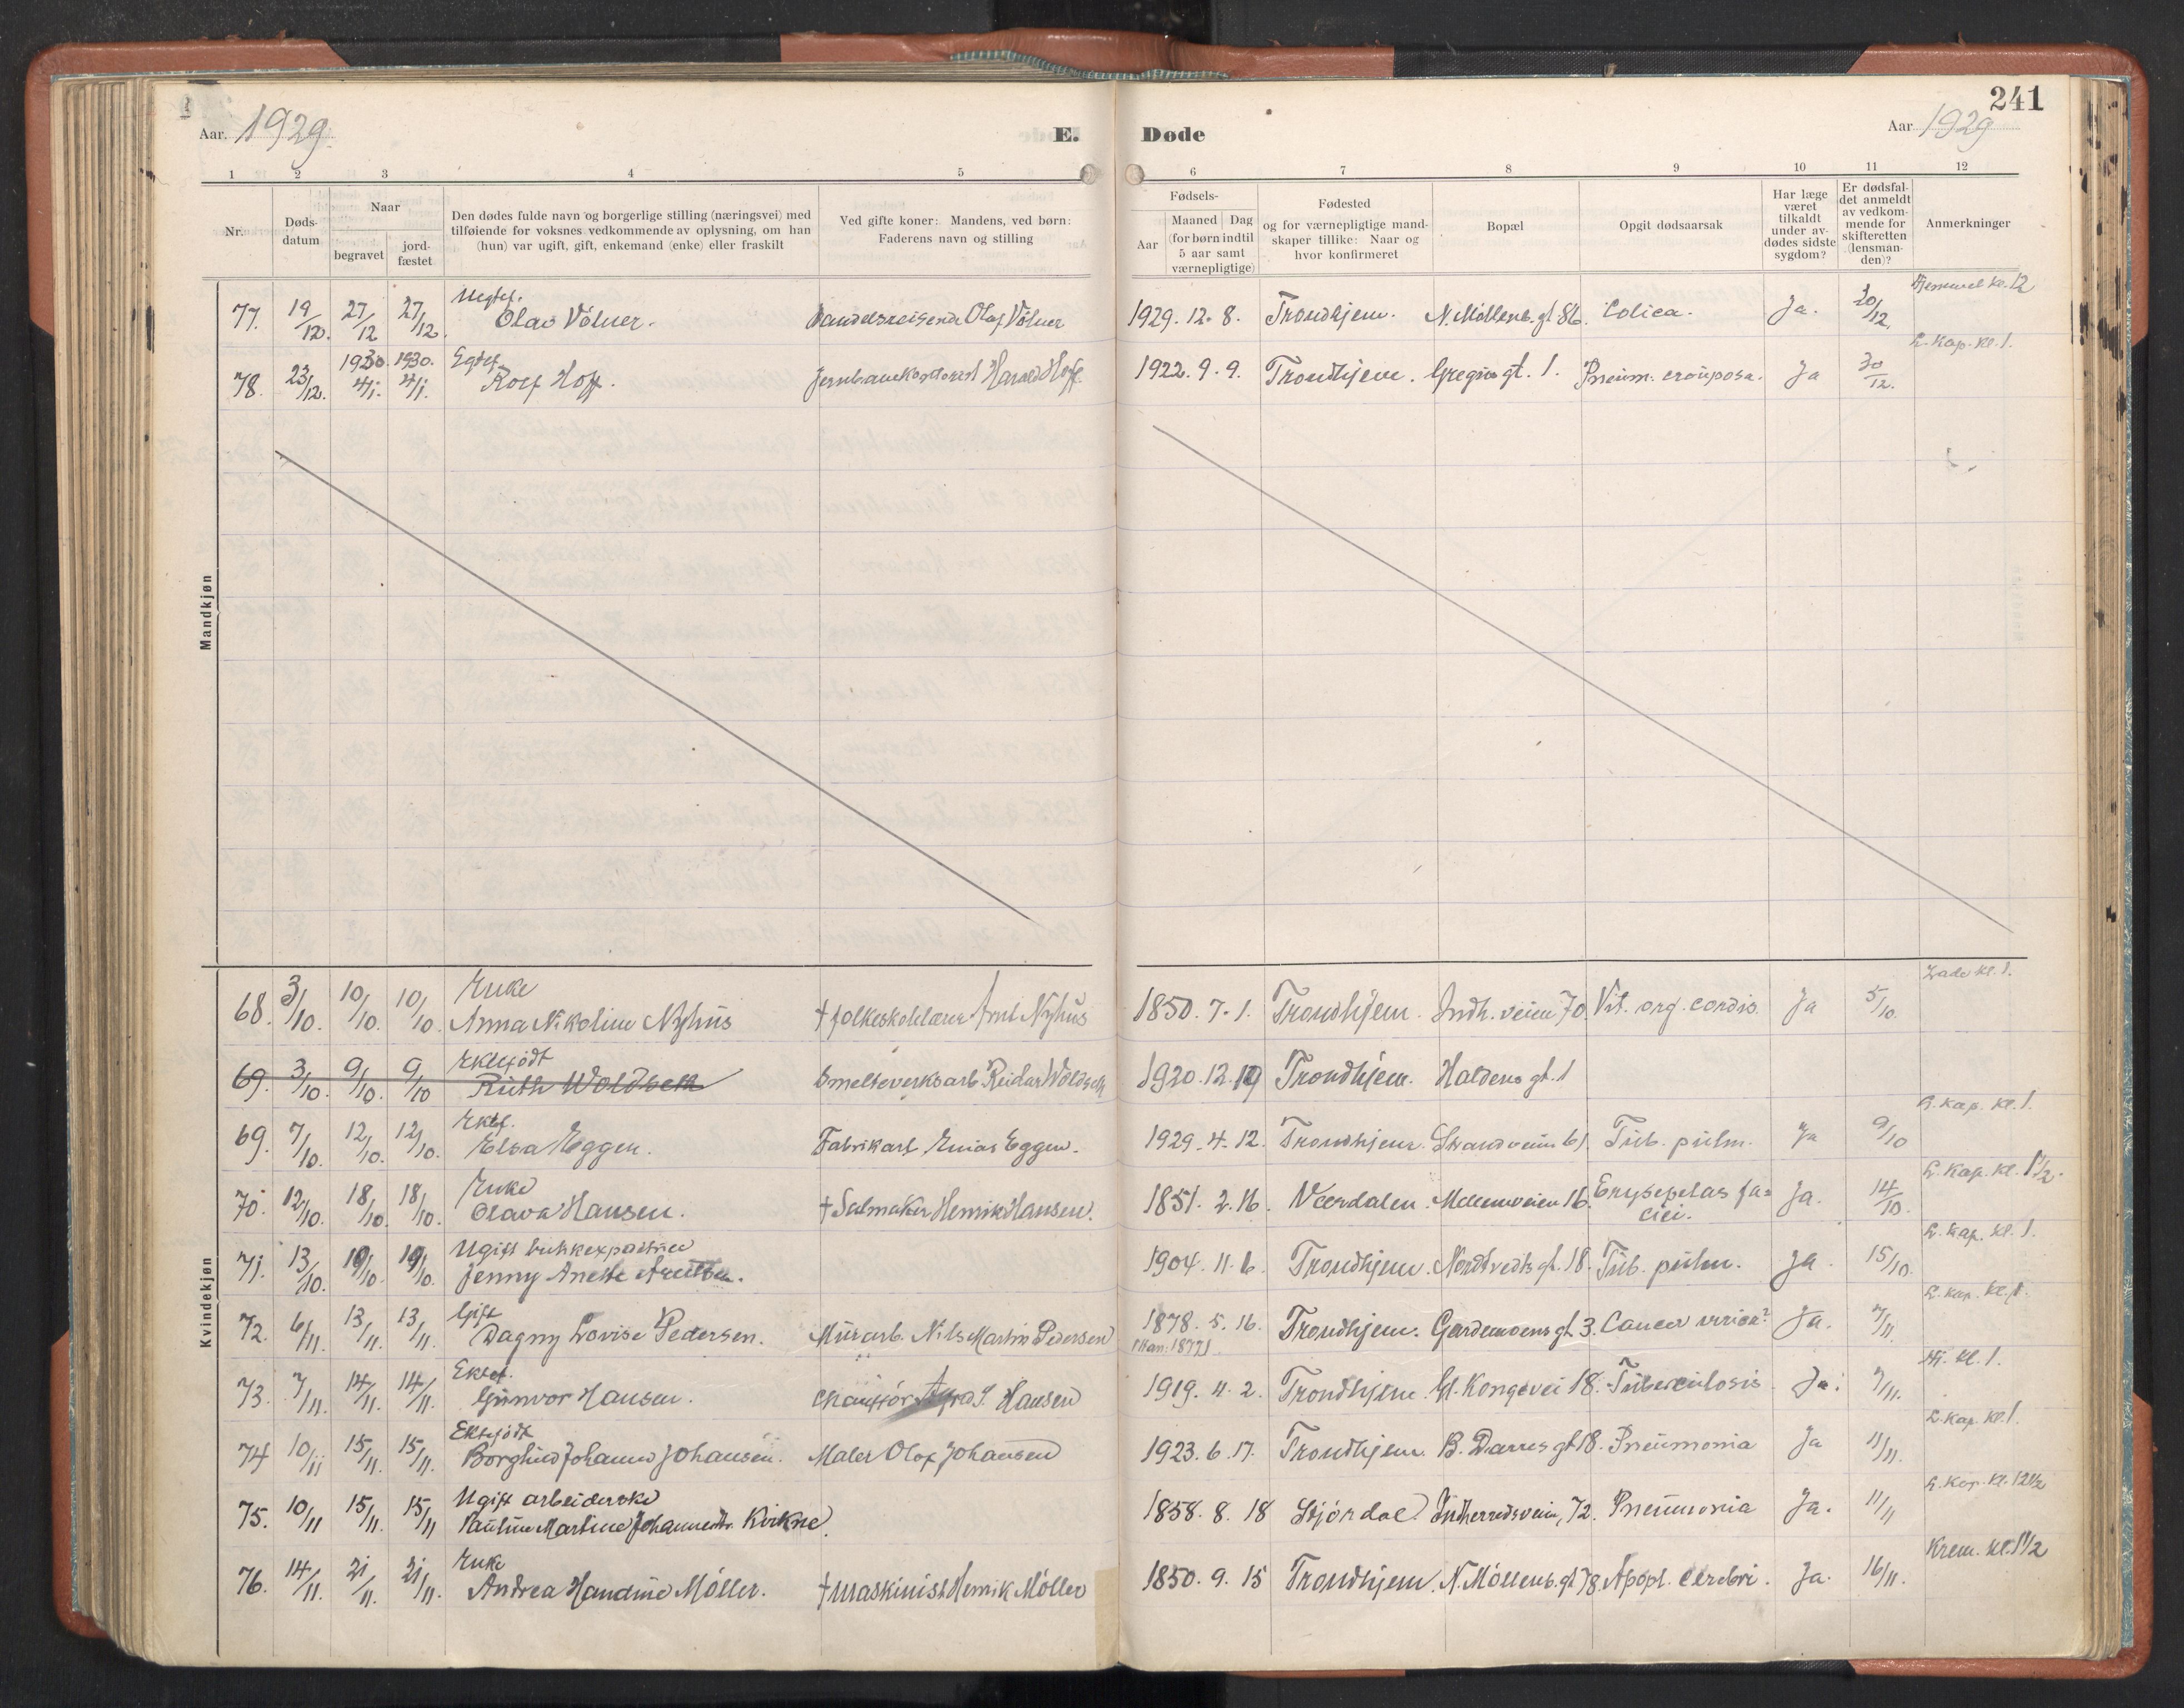 241
Aar 1929
E. Døde
Aar 1929
1 2 3 4 5 6 7 8 9 10 11 12
Nr.
Døds-
datum
Naar
begravet
jord-
fæstet
Den dødes fulde navn og borgerlige stilling (næringsvei) med
tilføiende for voksnes vedkommende av oplysning, om han
(hun) var ugift, gift, enkemand (enke) eller fraskilt
Ved gifte koner: Mandens, ved børn:
Faderens navn og stilling
Fødsels-
Aar
Maaned Dag
(for børn indtil
5 aar samt
værnepligtige)
Fødested
og for værnepligtige mand-
skaper tillike: Naar og
hvor konfirmeret
Bopæl
Opgit dødsaarsak
Har læge
været
tilkaldt
under av-
dødes sidste
sygdom?
Er dødsfal-
det anmeldt
av vedkom-
mende for
skifteretten
(lensman-
den)?
Anmerkninger
Mandkjøn
kl. 12
77. 19/12. 27/12 27/12. Olav Völner. Handelsreisende Olaf Völner 1929. 12. 8. Trondhjem. N. Möllenb. gt. 86. Colica. Ja. 20/12.
1930. 1930. Egtef. L. Kap. kl. 1.
78. 23/12. 4/1. 4/1. Rolf Hoff. Jernbanekontorist Harald Hoff. 1922. 9. 9. Trondhjem. gt. 1. Pneum. crouposa. Ja 30/12.
Kvindekjøn
Enke Lade kl. 1.
68. 3/10. 10/10. 10/10. Anna Nikoline Nyhus † folkeskolelærer Arnt Nyhus 1850. 7. 1. Trondhjem. Indh. veien 70. Vit. org. cordis. Ja 5/10.
Ektefödt
69. 3/10. 9/10. 9/10 Ruth Woldseth Smelteverksarb. Reidar Woldseth 1920. 12. 19 Trondhjem. Haldens gt. 1
Ektef. L. Kap. kl. 1.
69. 7/10. 12/10. 12/10. Elsa Eggen. Fabrikarb. Enias Eggen. 1929. 4. 12. Trondhjem. Strandveien 61. Tub. pulm. Ja 9/10
Enke L. Kap. kl. 1 1/2.
70. 12/10. 18/10. 18/10. Olava Hansen. † Salmaker Henrik Hansen. 1851. 2. 16. Værdalen. Mellemveien 16. Erysepelas fa=
ciei. Ja. 14/10.
Ugift L. Kap. kl. 1.
71. 13/10. 19/10. 19/10. Jenny Anette 1904. 11. 6. Trondhjem. Nordtvedts gt. 18. Tub. pulm. Ja. 15/10.
Gift L. Kap. kl. 1.
72. 6/11. 13/11. 13/11. Dagny Lovise Pedersen. Murarb. Nils Martin Pedersen 1878. 5. 16. Trondhjem. Gardemoens gt. 3. Cancer Ja. 7/11.
Ektef. kl. 1.
73. 7/11. 14/11. 14/11. Gunvor Hansen. Chaufför Hansen 1919. 4. 2. Trondhjem. Gl. Kongevei 18. Tuberculosis Ja. 9/11.
Ektefödt L. Kap. kl. 1.
74 10/11 15/11. 15/11. Borghild Johanne Johansen. Maler Olaf Johansen 1923. 6. 17. Trondhjem. B. Darres gt. 18. Pneumonia Ja 11/11.
Ugift arbeiderske L. Kap. kl. 12 1/2
75. 10/11 15/11. 15/11 Pauline Martine Johannesdtr. Kvikne. 1858. 8. 18 Stjördal. Indherredsveien 72. Pneumonia Ja. 11/11
Enke Krem. kl. 1 1/2
76. 14/11. 21/11. 21/11. Andrea Handine Möller. † maskinist Henrik Möller 1850. 9. 15 Trondhjem. N. Möllenb. gt. 78. Apopl. cerebri. Ja. 16/11.